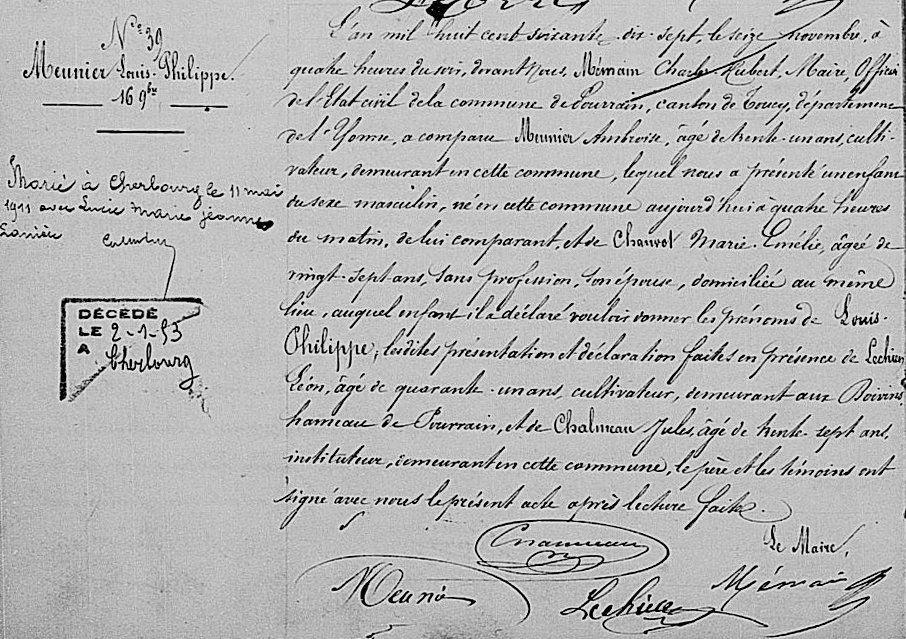 Nº 39
Meunier Louis-Philippe.
16 9bre
Marié à Cherbourg le 11 mai
1911 avec Lucie Marie Jeanne
DÉCÉDÉ
LE 2-1-53
A Cherbourg
L'an mil huit cent soixante-dix-sept, le seize novembre, à
quatre heures du soir, devant nous, Mémain Charles-Hubert, Maire, Officier
de l'État civil de la commune de Pourrain, canton de Toucy, département
de l'Yonne, a comparu Meunier Ambroise, âgé de trente-un ans, culti-
vateur, demeurant en cette commune, lequel nous a présenté un enfant
du sexe masculin, né en cette commune aujourd'hui à quatre heures
du matin, de lui comparant, et de Chauvot Marie-Emélie, âgée de
vingt-sept ans, sans profession, son épouse, domiciliée au même
lieu, auquel enfant il a déclaré vouloir donner les prénoms de Louis-
Philippe; lesdites présentation et déclaration faites en présence de Lechien
Léon, âgé de quarante-un ans, cultivateur, demeurant aux Boivins,
hameau de Pourrain, et de Chalmeau Jules, âgé de trente-sept ans,
instituteur, demeurant en cette commune, le père et les témoins ont
signé avec nous le présent acte après lecture faite.
Chalmeau
Le Maire,
Meunier
Lechien
Mémain